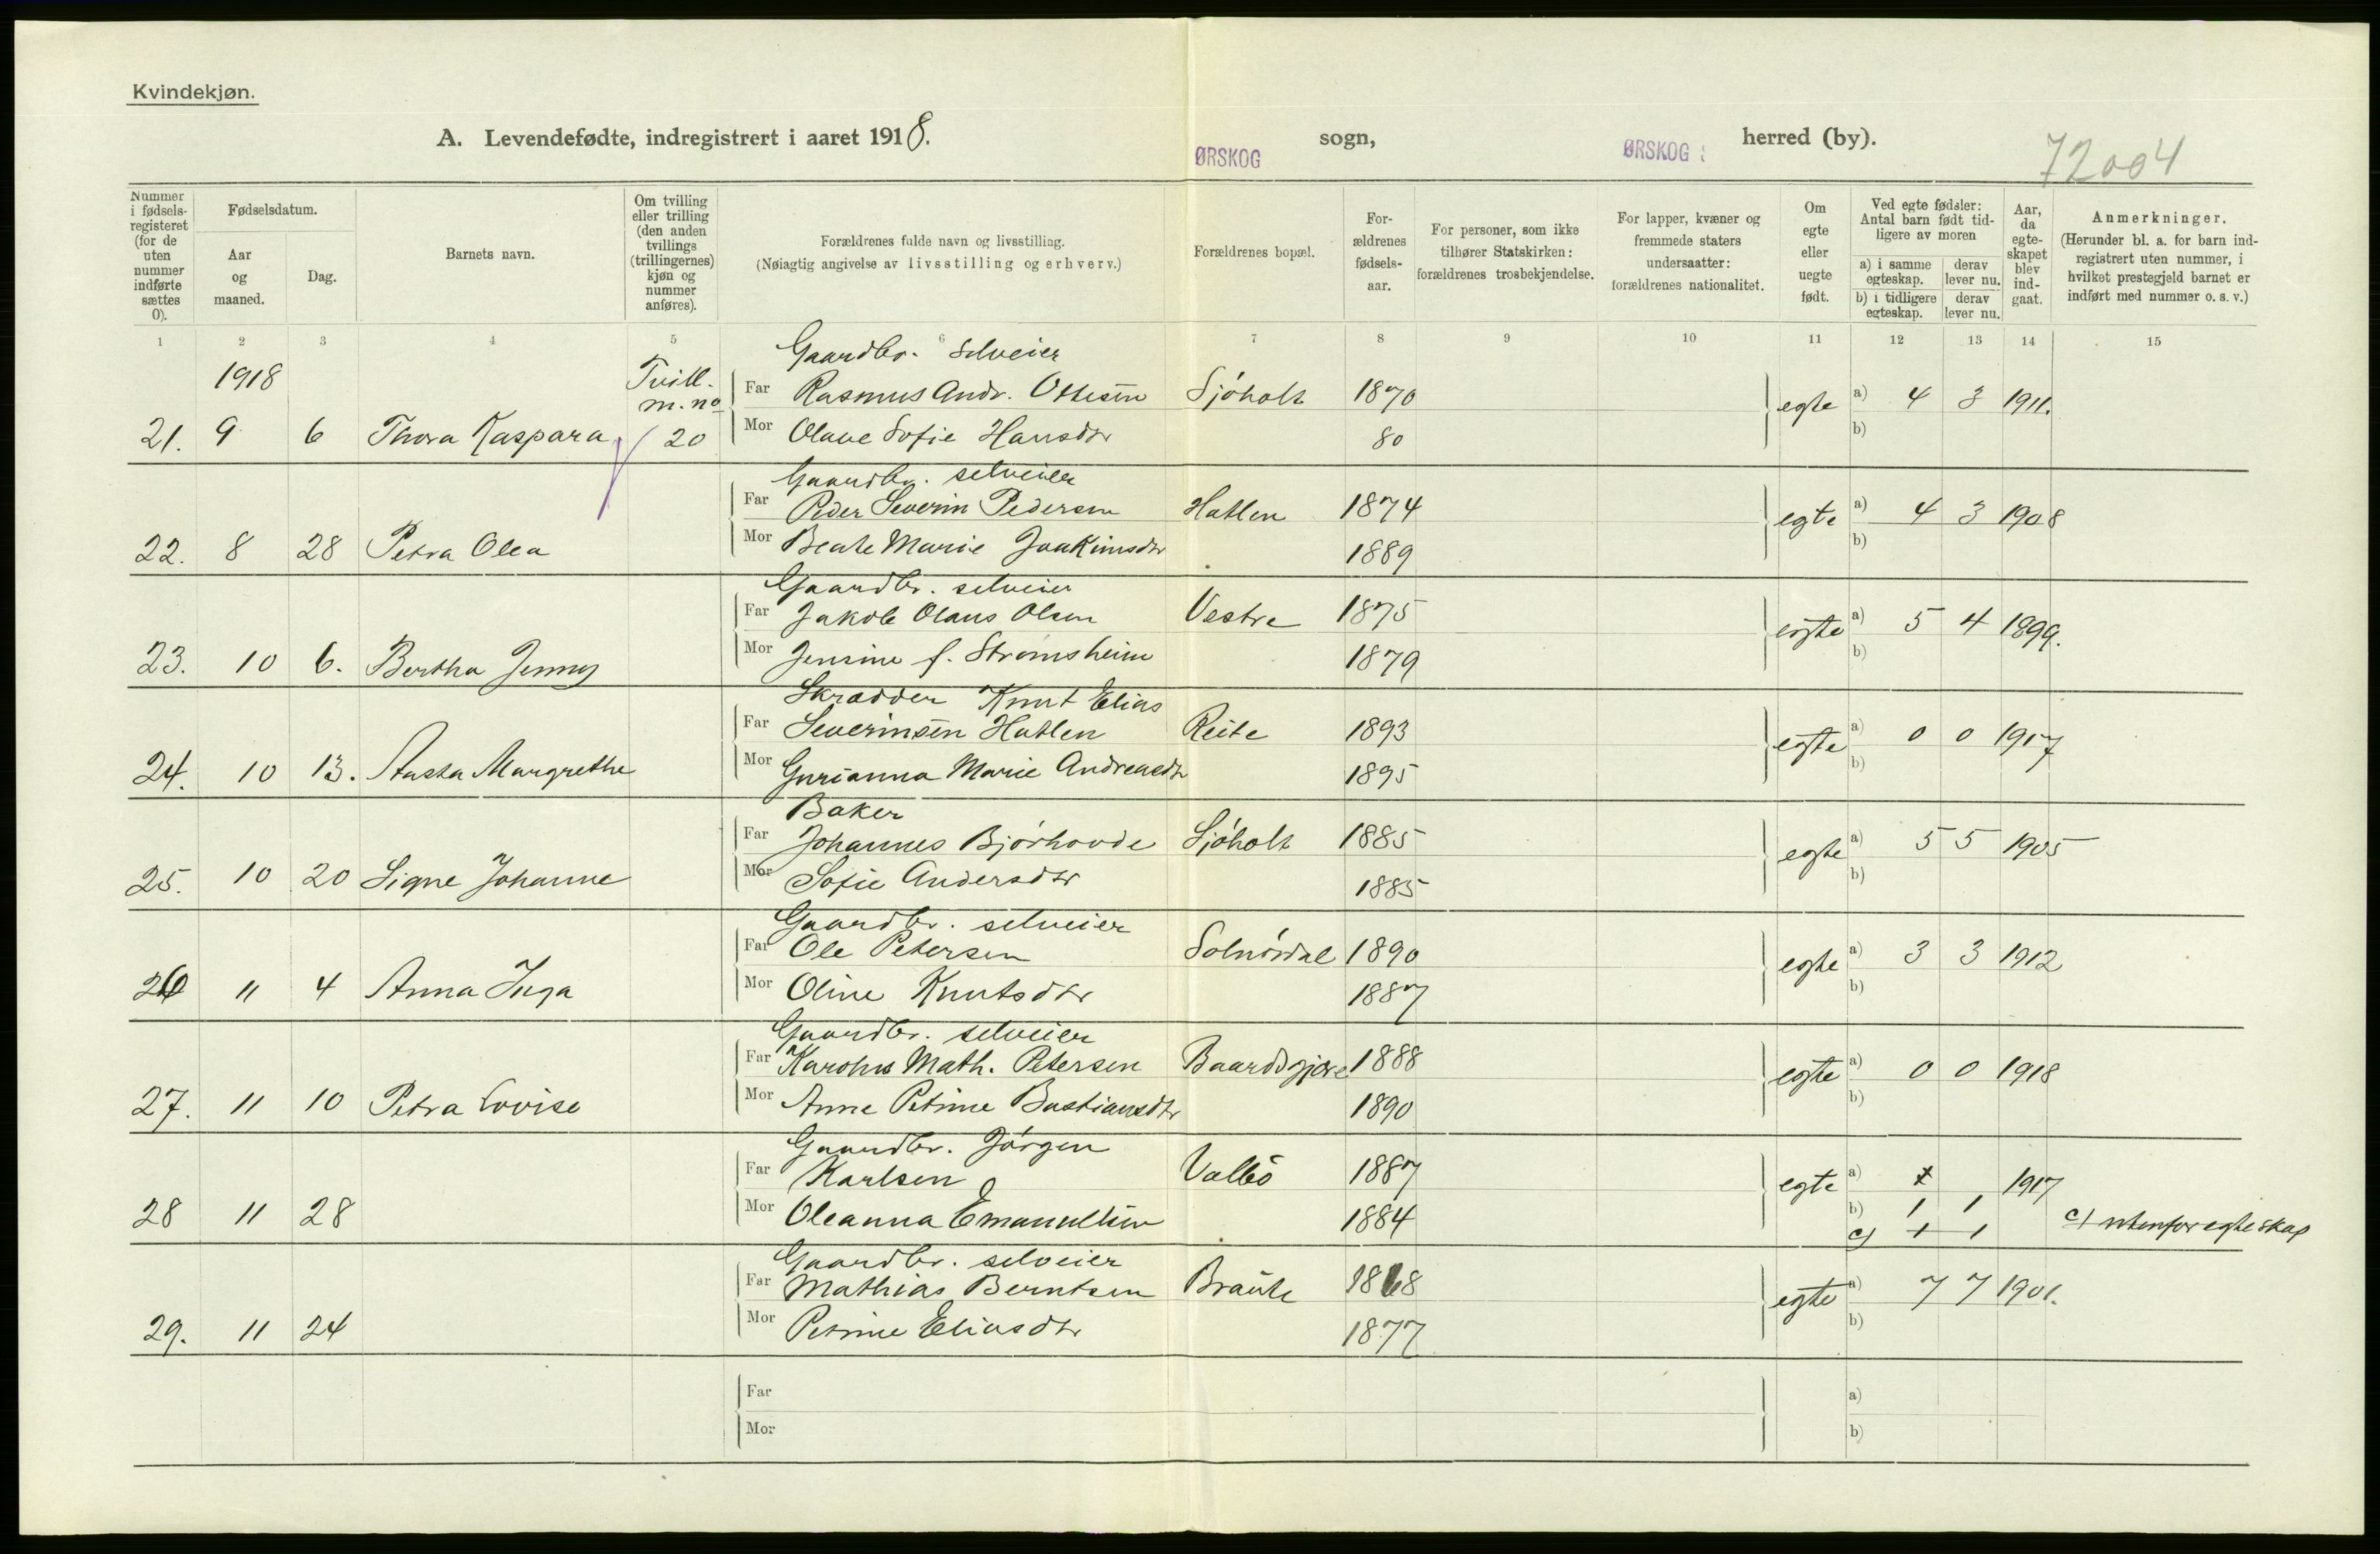 Kvindekjøn.
A. Levendefødte, indregistrert i aaret 1918.
ØRSKOG sogn, ØRSKOG herred (by).
72004
Nummer i fødsels-registeret (for de uten nummer indførte sættes 0).
Fødselsdatum.
Aar og maaned.
Dag.
Barnets navn.
Om tvilling eller trilling (den anden tvillings (trillingernes) kjøn og nummer anføres).
Forældrenes fulde navn og livsstilling.
(Nøiagtig angivelse av livsstilling og erhverv.)
Forældrenes bopæl.
For-ældrenes fødsels-aar.
For personer, som ikke tilhører Statskirken: forældrenes trosbekjendelse.
For lapper, kvæner og fremmede staters undersaatter: forældrenes nationalitet.
Om egte eller uegte født.
Ved egte fødsler: Antal barn født tid-ligere av moren
a) i samme egteskap. derav lever nu.
b) i tidligere egteskap. derav lever nu.
Aar, da egte-skapet blev ind-gaat.
Anmerkninger.
(Herunder bl. a. for barn ind-registrert uten nummer, i hvilket prestegjeld barnet er indført med nummer o. s. v.)
1 2 3 4 5 6 7 8 9 10 11 12 13 14 15
Gaardbr. Selveier
1918 Tvill. m. no
Far Rasmus Andr. Ottesen Sjøholt 1870 egte a) 4 3 1911.
21. 9 6 Thora Kaspara 20 Mor Olave Sofie Hansdtr 80 b)
Gaardbr. selveier
Far Peder Severin Pedersen Hatlen 1874 egte a) 4 3 1908
22. 8 28 Petra Olea Mor Beate Marie Joakimsdtr 1889 b)
Gaardbr. selveier
Far Jakob Olaus Olsen Vestre 1875 egte a) 5 4 1899.
23. 10 6. Bertha Jenny Mor Jensine f. Strømsheim 1879 b)
Skrædder Knut Elias
Far Severinsen Hatlen Reite 1893 egte a) 0 0 1917
24. 10 13. Aasta Margrethe Mor Gurianna Marie Andreasdtr 1895 b)
Baker
Far Johannes Bjørhovde Sjøholt 1885 egte a) 5 5 1905
25. 10 20 Signe Johanne Mor Sofie Andersdtr 1885 b)
Gaardbr. selveier
Far Ole Petersen Solnørdal 1890 egte a) 3 3 1912
26 11 4 Anna Inga Mor Oline Knutsdtr 1887 b)
Gaardbr. selveier
Far Karolus Math. Petersen Baardsgjære 1888 egte a) 0 0 1918
27. 11 10 Petra Lovise Mor Anne Petrine Bastiansdtr 1890 b)
Gaardbr. Jørgen
Far Karlsen Valbø 1887 egte a) 1917
28 11 28 Mor Oleanna Emanuelsen 1884 b) 1 1
c) 1 1 c) utenfor egteskap
Gaardbr. selveier
Far Mathias Berntsen Braute 1868 egte a) 7 7 1901.
29. 11 24 Mor Petrine Eliasdtr 1877 b)
Far a)
Mor b)